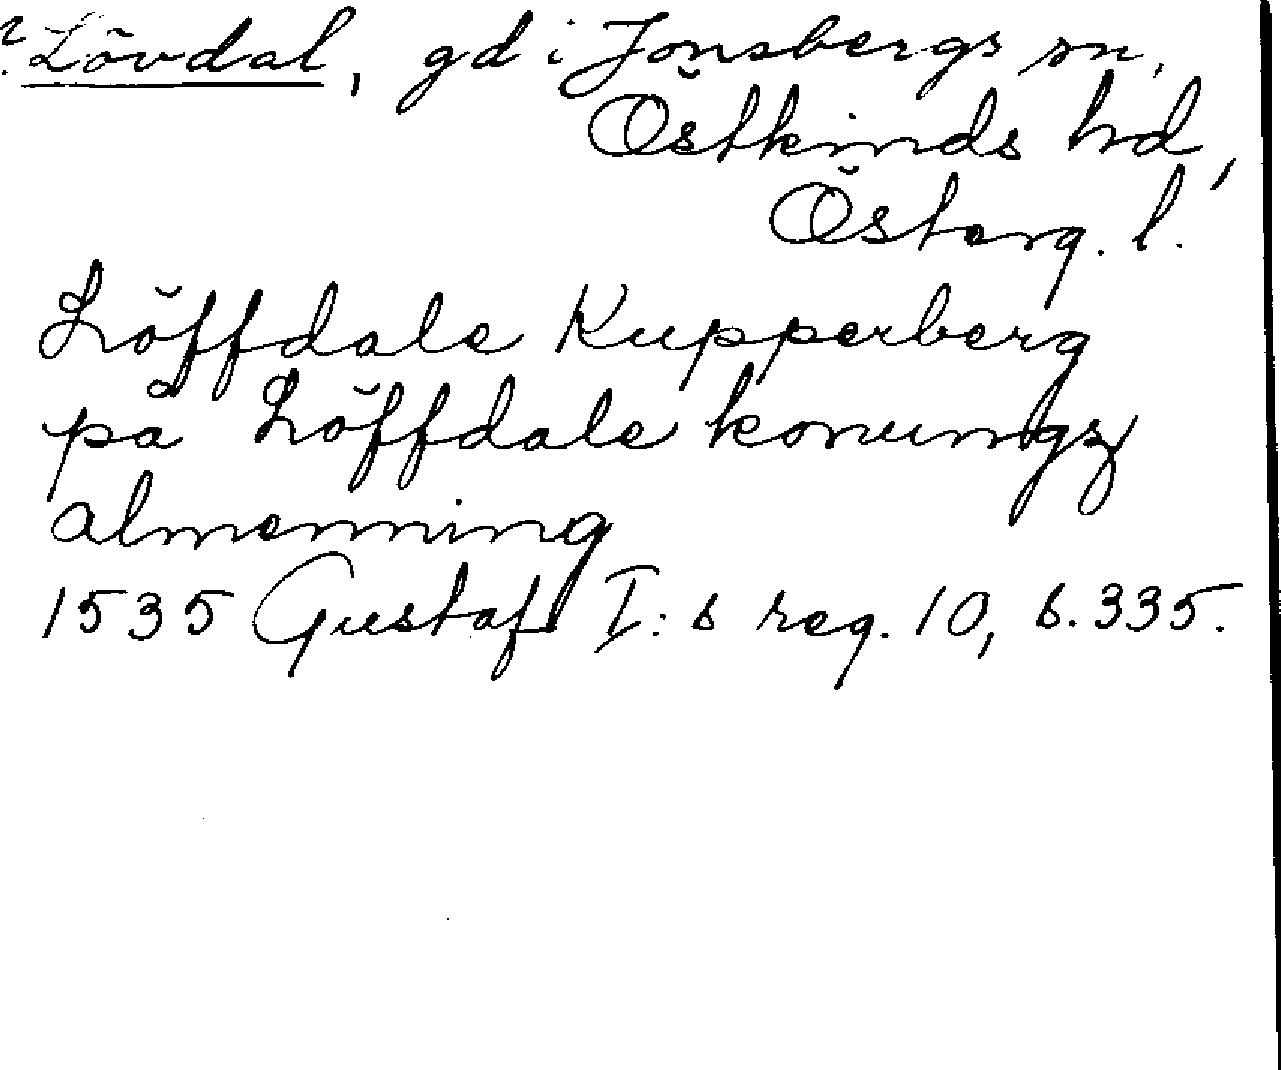 ? Lövdal, gd i Jonsbergs sn,
Östkinds hd,
Österg. l.
Löffdale Kupperberg
på Löffdale konungz
almenning
1535 Gustaf I:s reg. 10, s. 335.